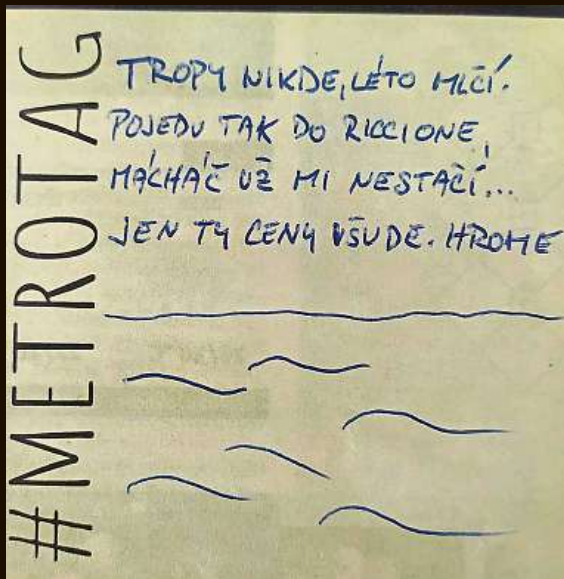 #METROTAG
TROPY NIKDE, LÉTO MLČÍ.
POJEDU TAK DO RICCIONE,
MÁCHÁČ UŽ MI NESTAČÍ...
JEN TY CENY VŠUDE. HROME